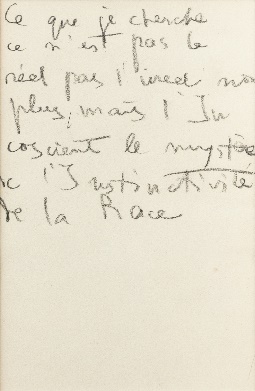 Ce que je cherche
ce n'est pas le
réel pas l'irreel non
plus, mais l'In
coscient le mystère
de l'Instinctivité
de la Race